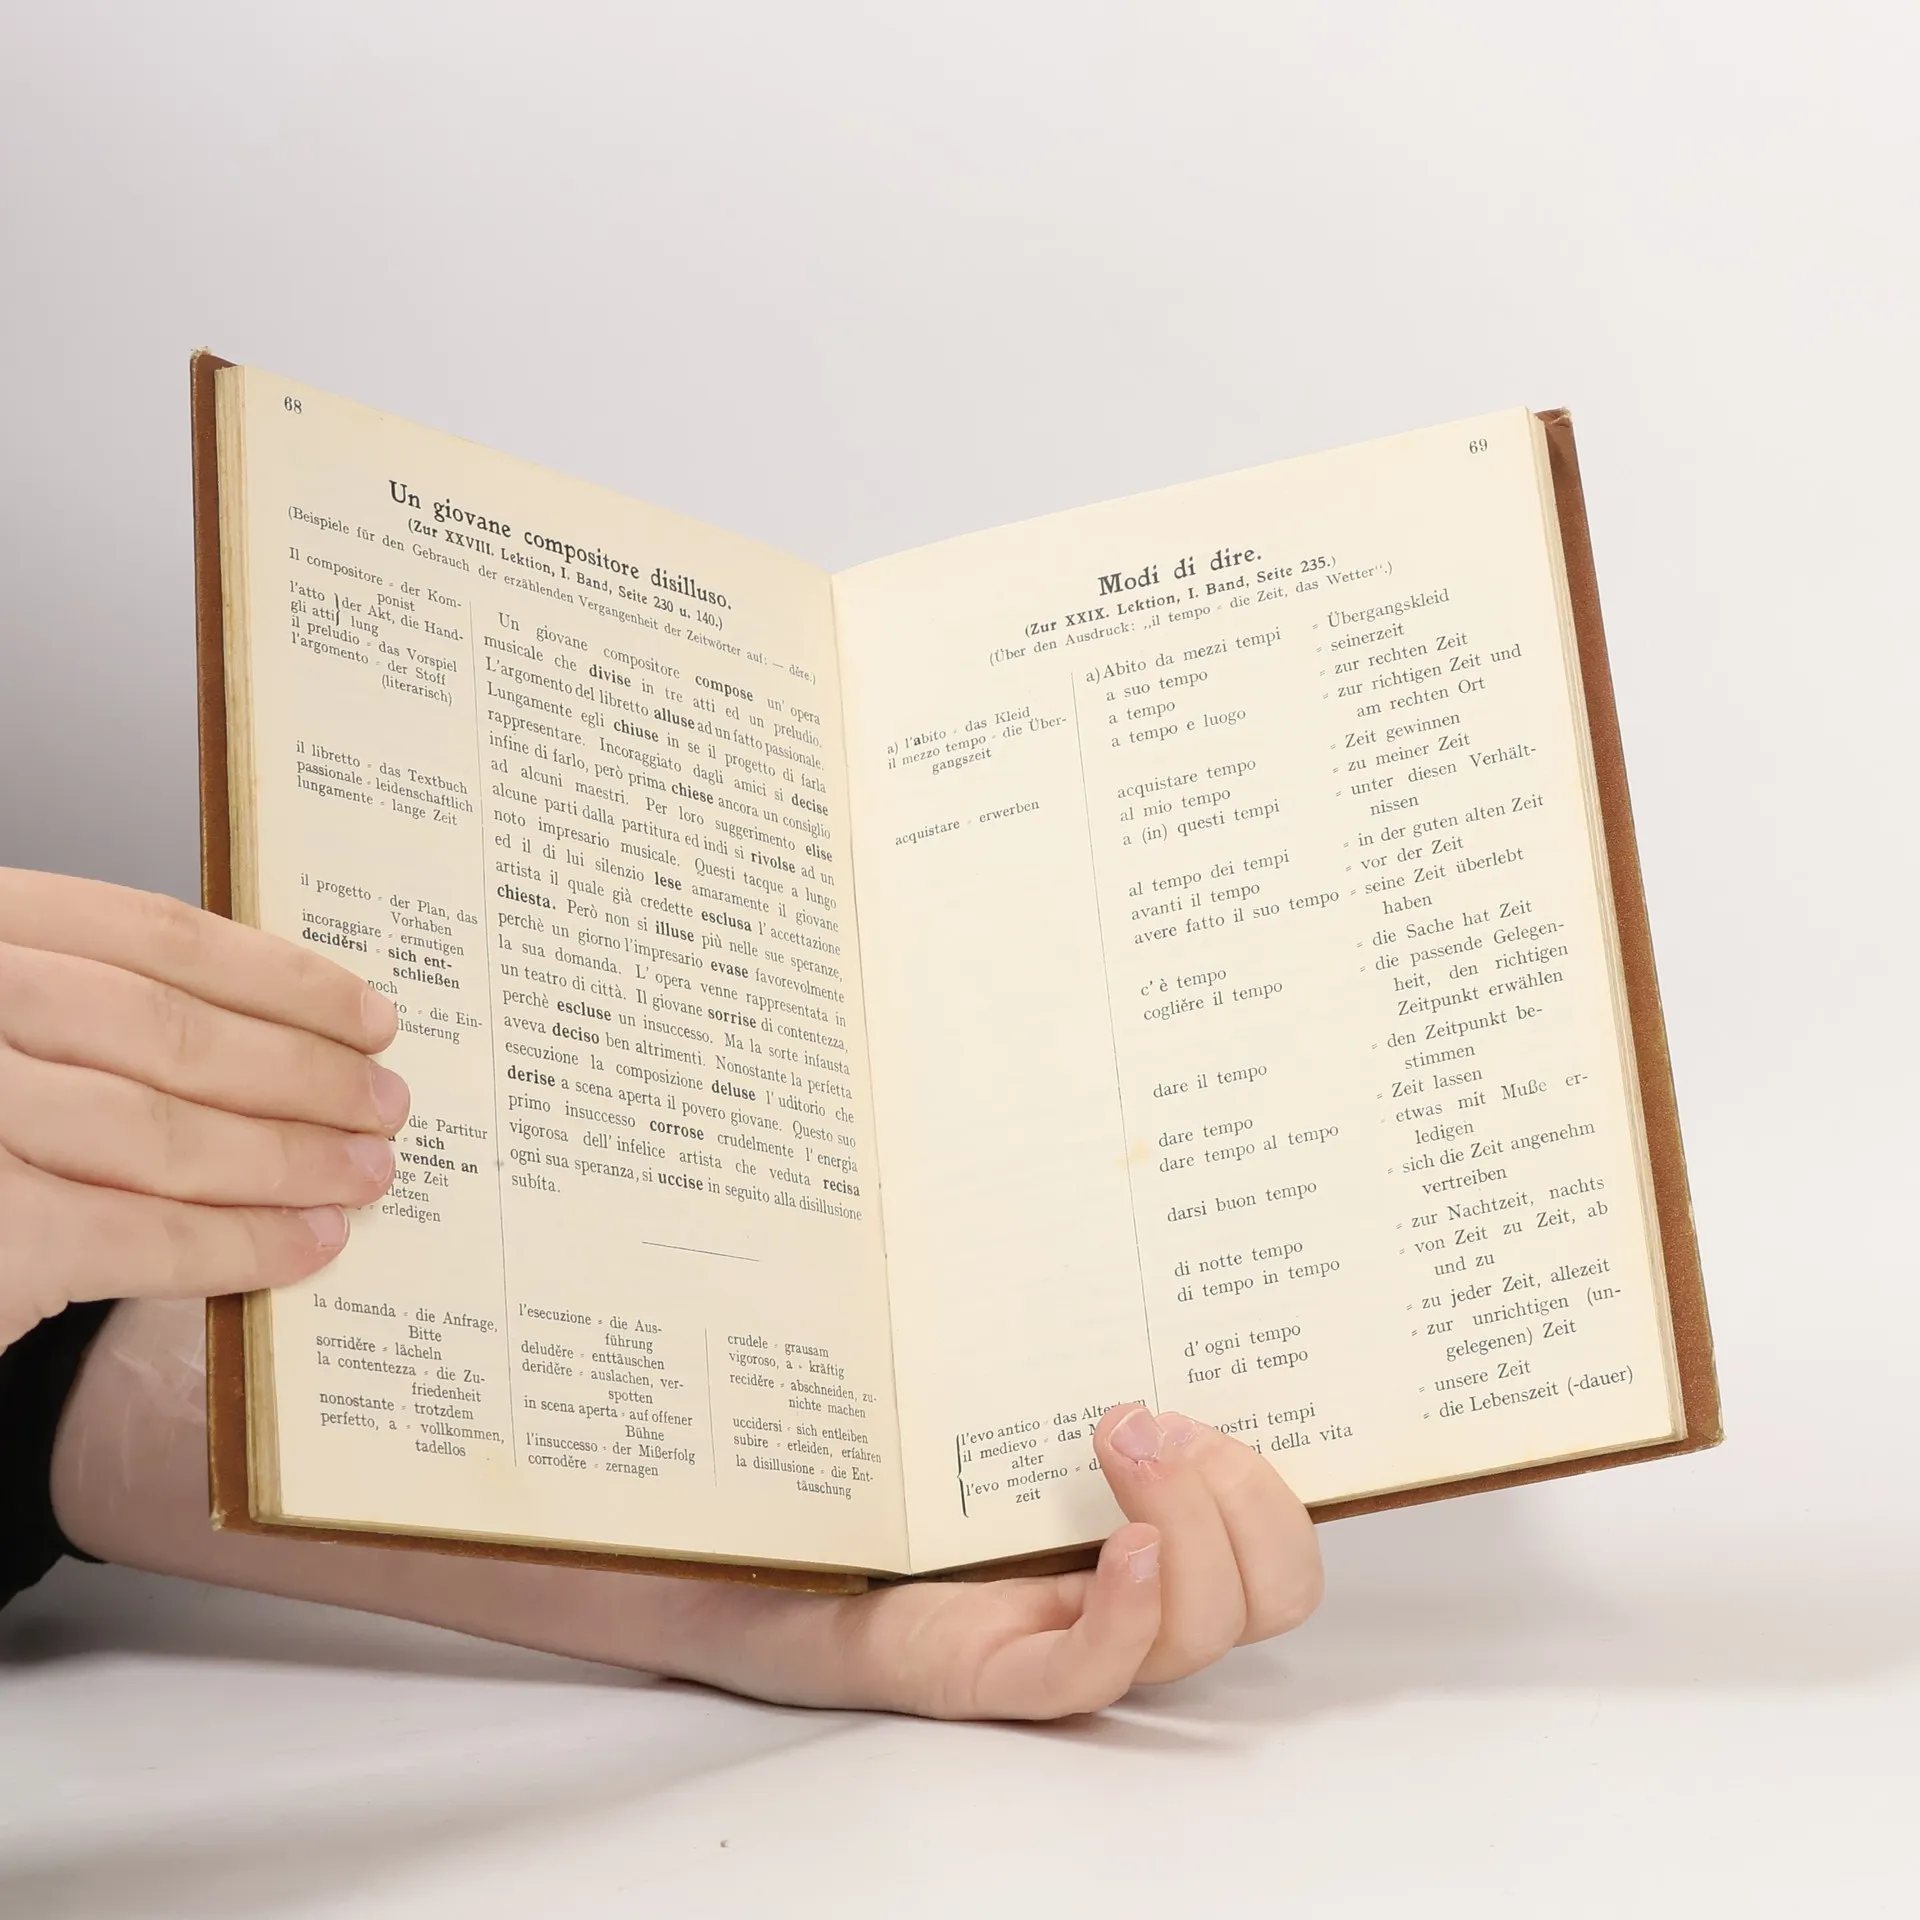 68
Un giovane compositore disilluso.
(Zur XXVIII. Lektion, I. Band, Seite 230 u. 140.)
(Beispiele für den Gebrauch der erzählenden Vergangenheit der Zeitwörter auf: — děre.)
Il compositore = der Kom-
ponist
l'atto
gli atti
der Akt, die Hand-
lung
il preludio = das Vorspiel
l'argomento = der Stoff
(literarisch)
il libretto = das Textbuch
passionale = leidenschaftlich
lungamente = lange Zeit
il progetto = der Plan, das
Vorhaben
incoraggiare = ermutigen
deciděrsi = sich ent-
schließen
noch
= die Ein-
flüsterung
die Partitur
= sich
wenden an
Zeit
erledigen
Un giovane compositore compose un' opera
musicale che divise in tre atti ed un preludio.
L'argomento del libretto alluse ad un fatto passionale.
Lungamente egli chiuse in se il progetto di farla
rappresentare. Incoraggiato dagli amici si decise
infine di farlo, però prima chiese ancora un consiglio
ad alcuni maestri. Per loro suggerimento elise
alcune parti dalla partitura ed indi si rivolse ad un
noto impresario musicale. Questi tacque a lungo
ed il di lui silenzio lese amaramente il giovane
artista il quale già credette esclusa l' accettazione
chiesta. Però non si illuse più nelle sue speranze,
perchè un giorno l'impresario evase favorevolmente
la sua domanda. L' opera venne rappresentata in
un teatro di città. Il giovane sorrise di contentezza,
perchè escluse un insuccesso. Ma la sorte infausta
aveva deciso ben altrimenti. Nonostante la perfetta
esecuzione la composizione deluse l' uditorio che
derise a scena aperta il povero giovane. Questo suo
primo insuccesso corrose crudelmente l' energia
vigorosa dell' infelice artista che veduta recisa
ogni sua speranza, si uccise in seguito alla disillusione
subíta.
la domanda = die Anfrage,
Bitte
sorriděre = lächeln
la contentezza = die Zu-
friedenheit
nonostante = trotzdem
perfetto, a = vollkommen,
tadellos
l'esecuzione = die Aus-
führung
deluděre = enttäuschen
deriděre = auslachen, ver-
spotten
in scena aperta = auf offener
Bühne
l'insuccesso = der Mißerfolg
corroděre = zernagen
crudele = grausam
vigoroso, a = kräftig
reciděre = abschneiden, zu-
nichte machen
uccidersi = sich entleiben
subire = erleiden, erfahren
la disillusione = die Ent-
täuschung
69
Modi di dire.
(Zur XXIX. Lektion, I. Band, Seite 235.)
(Über den Ausdruck: „il tempo = die Zeit, das Wetter“.)
a) l'abito = das Kleid
il mezzo tempo = die Über-
gangszeit
acquistare = erwerben
l'evo antico = das
il medievo = das
alter
l'evo moderno =
zeit
a) Abito da mezzi tempi = Übergangskleid
a suo tempo = seinerzeit
a tempo = zur rechten Zeit
a tempo e luogo = zur richtigen Zeit und
am rechten Ort
acquistare tempo = Zeit gewinnen
al mio tempo = zu meiner Zeit
a (in) questi tempi = unter diesen Verhält-
nissen
al tempo dei tempi = in der guten alten Zeit
avanti il tempo = vor der Zeit
avere fatto il suo tempo = seine Zeit überlebt
haben
c' è tempo = die Sache hat Zeit
cogliěre il tempo = die passende Gelegen-
heit, den richtigen
Zeitpunkt erwählen
dare il tempo = den Zeitpunkt be-
stimmen
dare tempo = Zeit lassen
dare tempo al tempo = etwas mit Muße er-
ledigen
darsi buon tempo = sich die Zeit angenehm
vertreiben
di notte tempo = zur Nachtzeit, nachts
di tempo in tempo = von Zeit zu Zeit, ab
und zu
d' ogni tempo = zu jeder Zeit, allezeit
fuor di tempo = zur unrichtigen (un-
gelegenen) Zeit
nostri tempi = unsere Zeit
della vita = die Lebenszeit (-dauer)